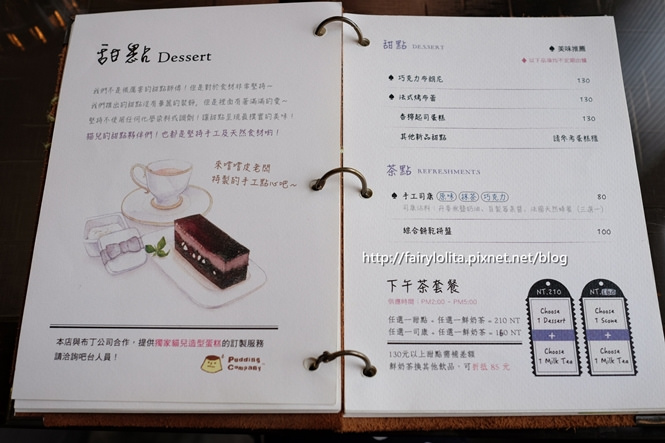 甜點 Dessert
我們不是很厲害的甜點師傅！但是對於食材非常堅持～
我們推出的甜點沒有華麗的裝飾，但是裡面有著滿滿的愛～
堅持不使用任何化學染料或調劑！讓甜點呈現最樸實的美味！
貓兒的甜點夥伴們！也都是堅持手工及天然食材喲！
來嚐嚐皮老闆
特製的手工點心吧～
本店與布丁公司合作，提供獨家貓兒造型蛋糕的訂製服務
請洽詢吧台人員！
Pudding Company
甜點 DESSERT
♠ 美味推薦
♠ 巧克力布朗尼 130
♠ 法式烤布蕾 130
香檸起司蛋糕 130
其他新品甜點 請參考蛋糕櫃
茶點 REFRESHMENTS
♠ 手工司康 原味 抹茶 巧克力 80
綜合餅乾拼盤 100
http://fairylolita.pixnet.net/blog
下午茶套餐
供應時間：PM2:00 ~ PM5:00
任選一甜點 + 任選一鮮奶茶 = 210 NT
任選一司康 + 任選一鮮奶茶 = 160 NT
130元以上甜點需補差額
鮮奶茶換其他飲品，可折抵 85 元
NT.210
Choose
1 Dessert
+
Choose
1 Milk Tea
NT.
Choose
1 Scone
+
Choose
1 Milk Tea